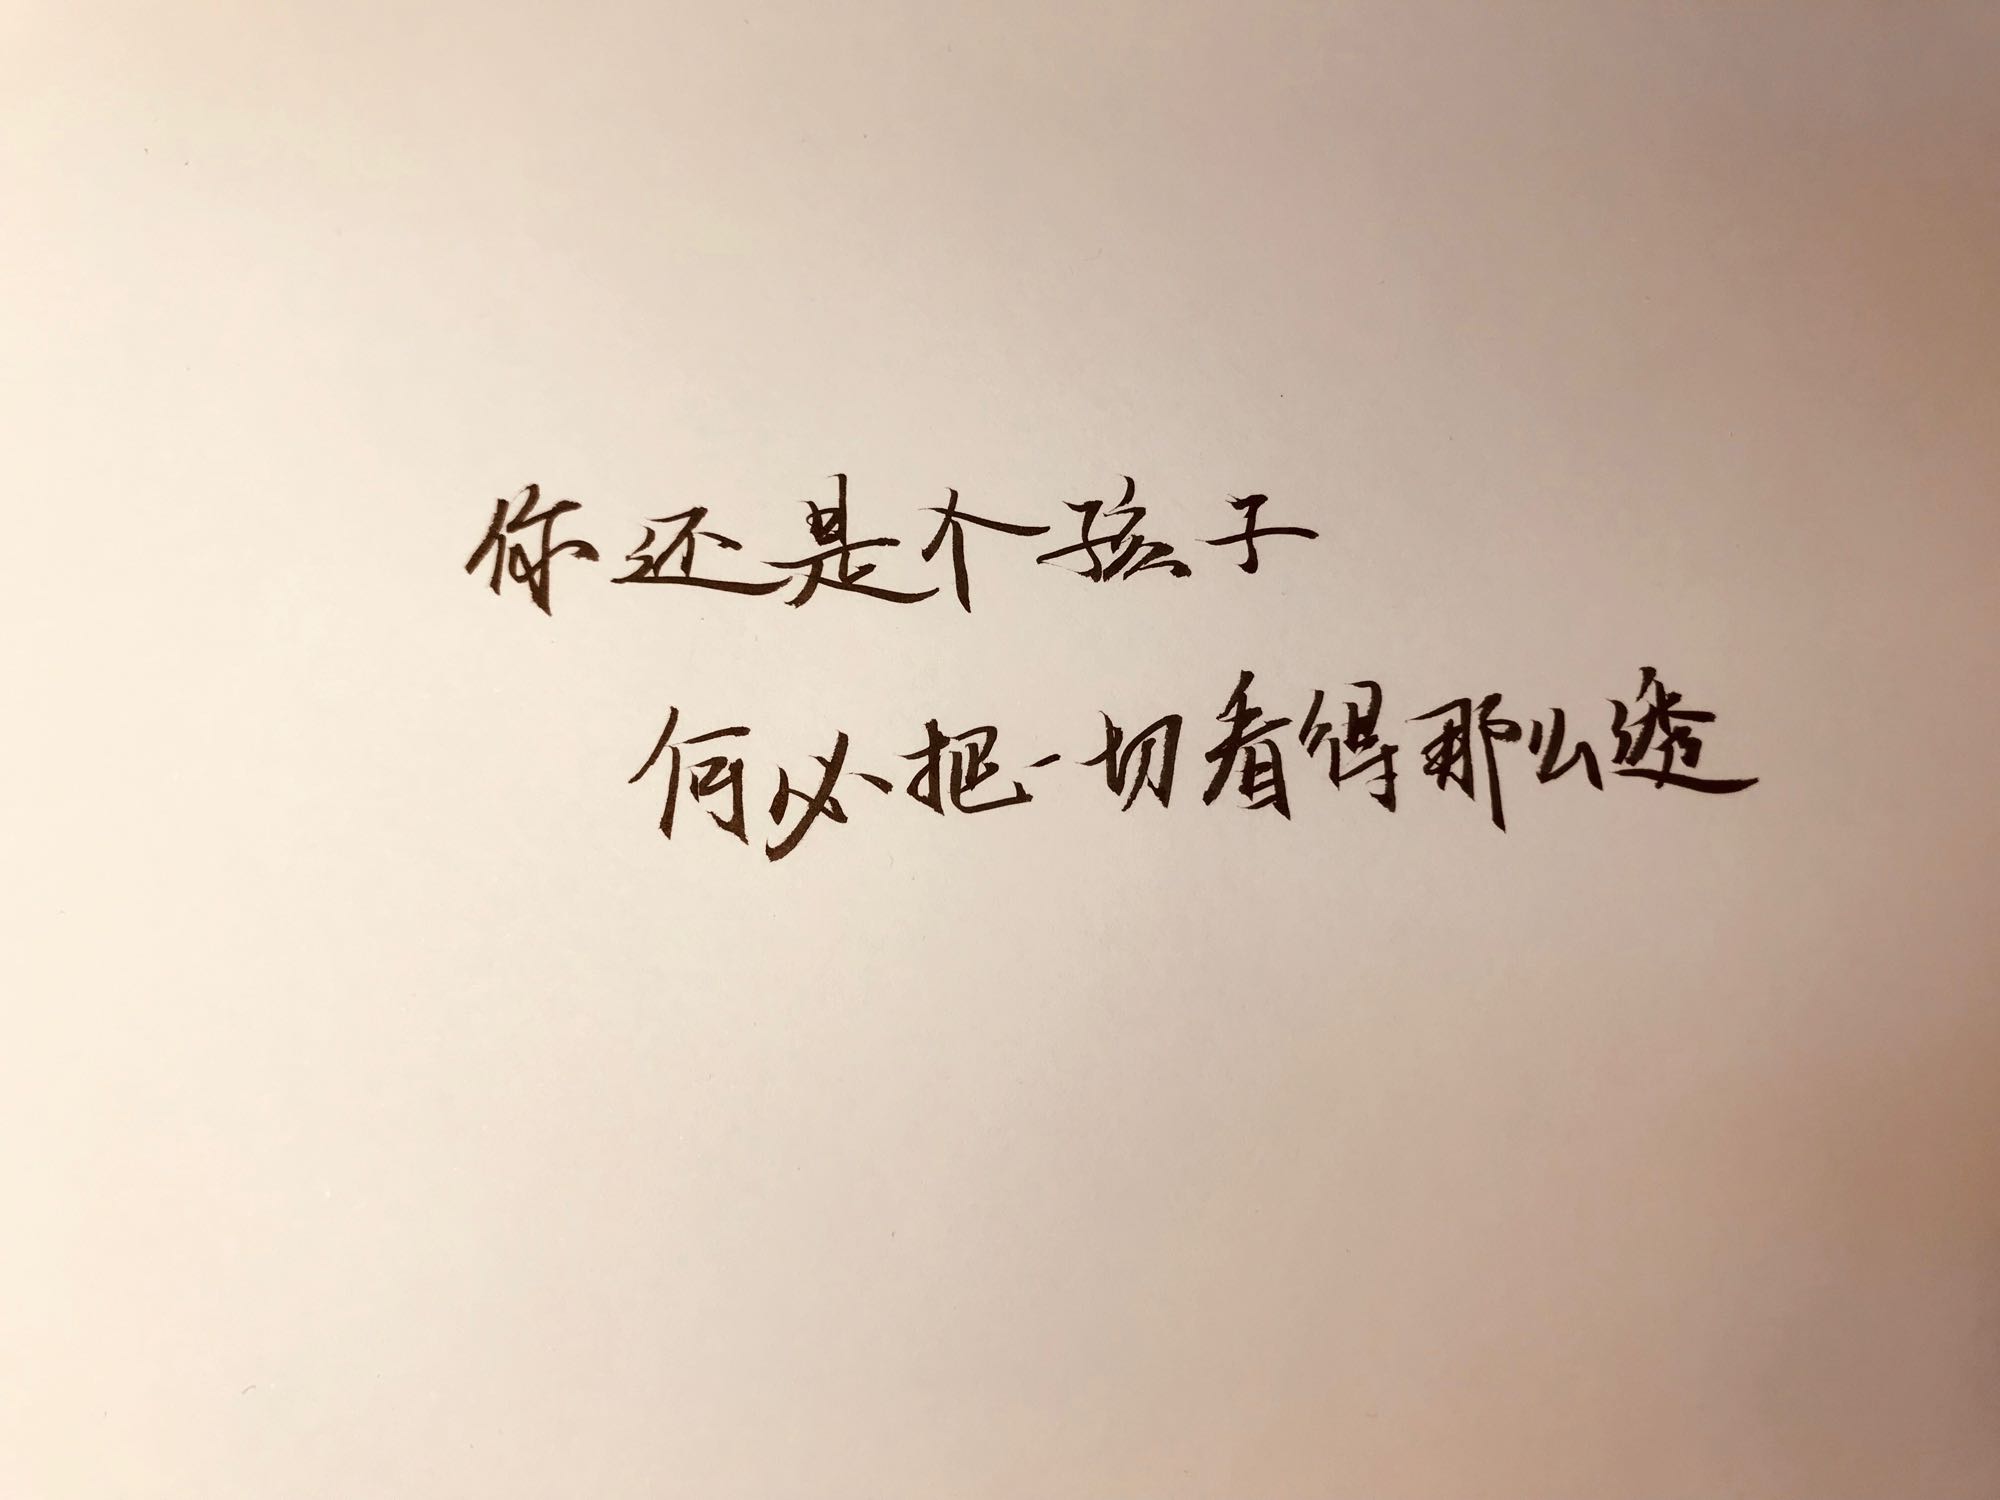 你还是个孩子
何必把一切看得那么透